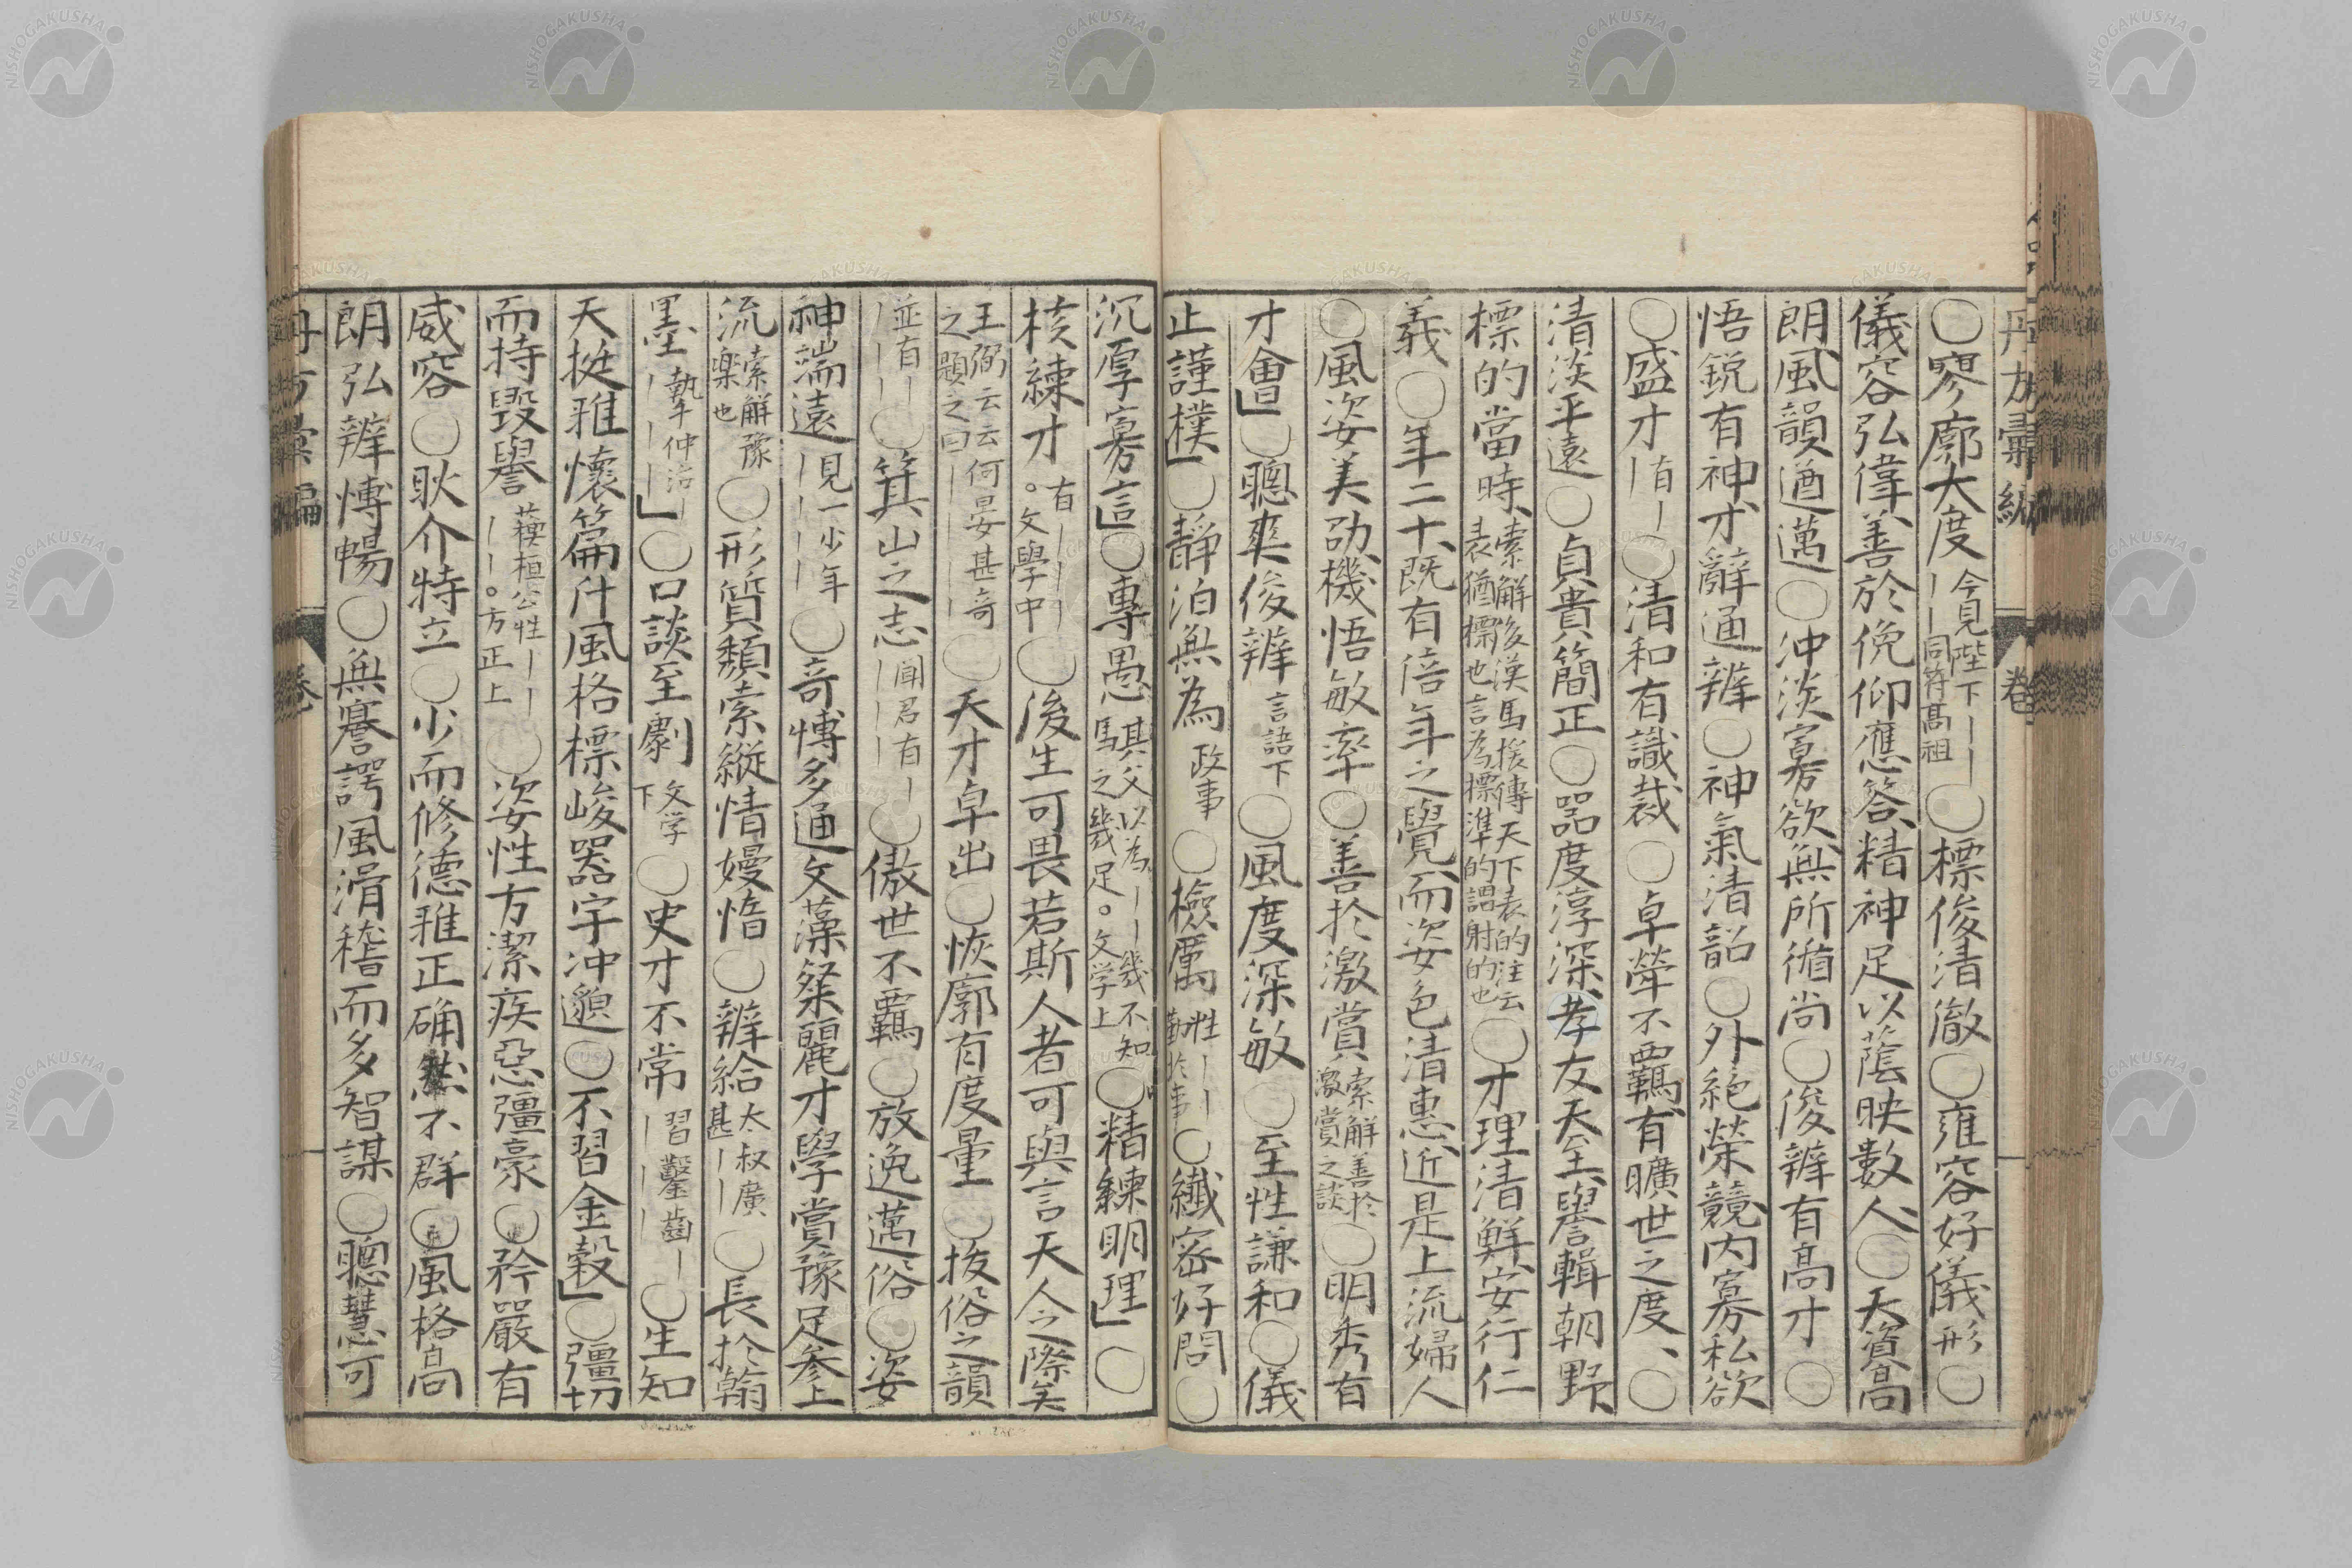 丹方彙編 卷
○寥廓大度今見陛下｜｜｜｜同符高祖○標俊清澈○雍容好儀形○
儀容弘偉善於俛仰應答精神足以蔭映數人○天資高
朗風韻遒邁○沖淡寡欲無所循尚○俊辨有高才○
悟銳有神才辭通辨○神氣清韶○外絕榮競內寡私欲
○盛才｜有｜○清和有識裁○卓犖不羈有曠世之度、○
清淡平遠○貞貴簡正○器度淳深孝友天至譽輯朝野
標的當時索解後漢馬援傳天下表的注云表猶標也言為標準的謂射的也○才理清鮮安行仁
義○年二十既有倍年之覺而姿色清惠近是上流婦人
○風姿美劭機悟敏率○善於激賞索解善於激賞之談○明秀有
才會」○聰爽俊辨言語下○風度深敏○至性謙和○儀
止謹樸」○靜泊無為政事○檢厲性｜｜勤於事○纖密好問○
沉厚寡言」○專愚其父以為｜｜幾不知馬之幾足。文学上○精練明理」○
核練才有｜｜｜。文學中○後生可畏若斯人者可與言天人之際矣
王弼云云何晏甚奇之題之曰｜｜｜○天才卓出○恢廓有度量○拔俗之韻
並有｜｜｜｜○箕山之志聞君有｜｜｜｜○傲世不羈○放逸邁俗○姿
神端遠見一少年｜｜｜｜○奇博多通文藻粲麗才學賞豫足參上
流索解豫樂也○形質頹索縱情嫚惰○辨給太叔廣甚｜｜○長於翰
墨摯仲治｜｜｜｜」○口談至劇文学下○史才不常習鑿齒｜｜｜｜○生知
天挺雅懷篇什風格標峻器宇沖邈○不習金穀」○彊切
而持毀譽桓公性｜｜｜｜。方正上○姿性方潔疾惡彊豪○矜嚴有
威容○耿介特立○少而修德雅正确然不群○風格高
朗弘辨博暢○無謇諤風滑稽而多智謀○聰慧可
丹方彙編 卷